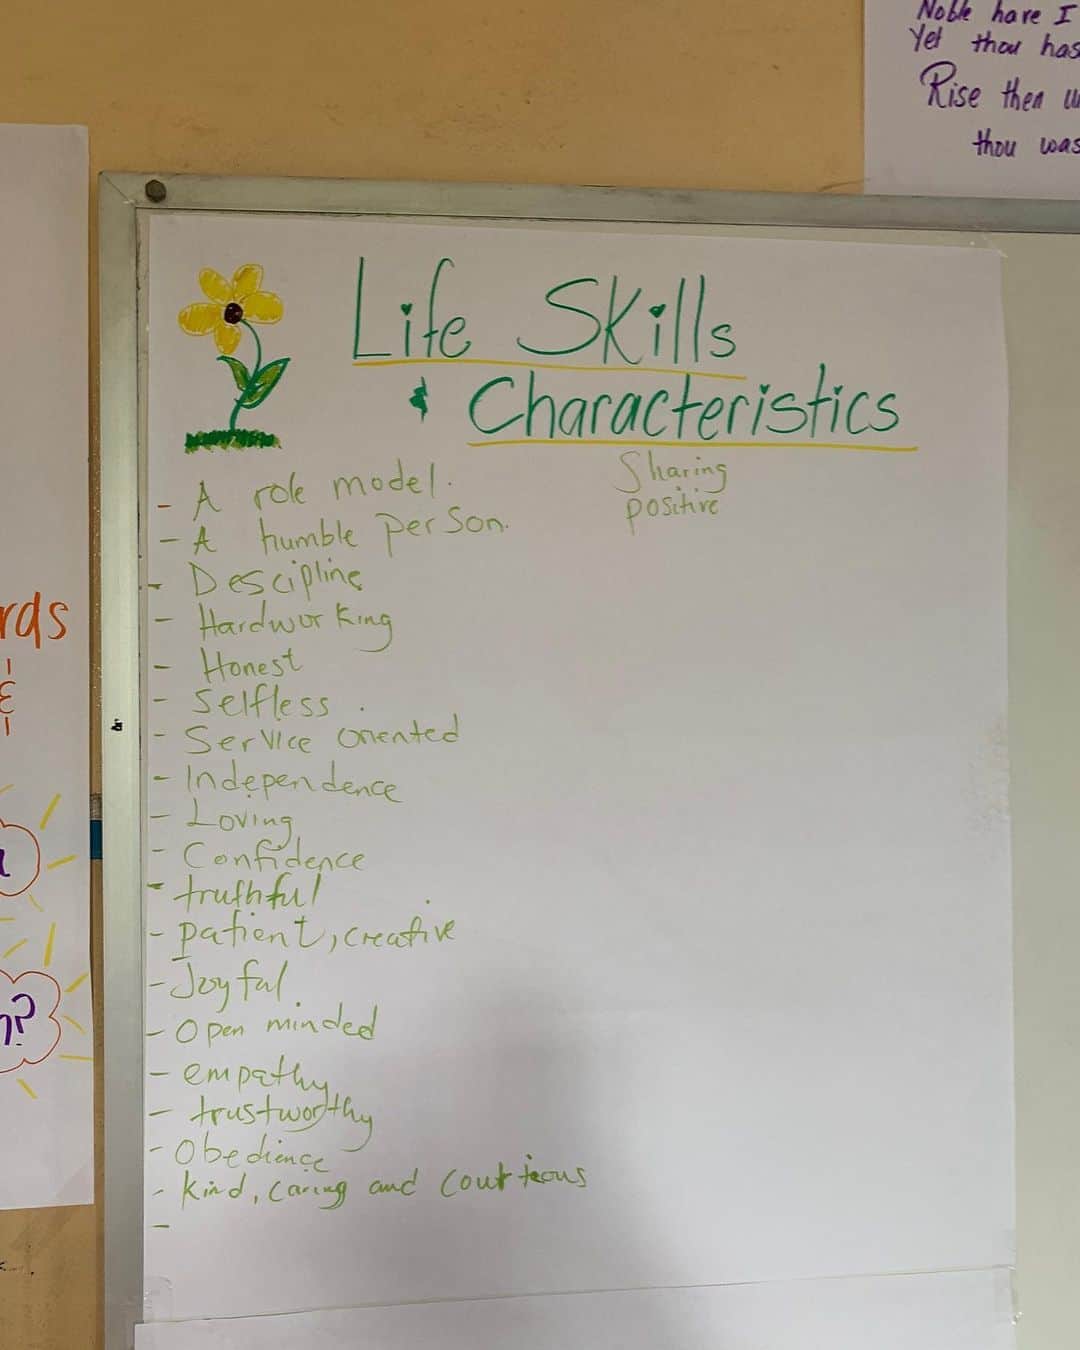 Noble have I
Yet thou has
Rise then u
thou was
Life Skills
& Characteristics
- A role model.
- A humble person.
- Descipline
- Hardworking
- Honest
- Selflless
- Service oriented
- Independence
- Loving
- Confidence
- truthful
- patient, creative
- Joyful
- Open minded
- empathy
- trustworthy
- Obedience
- Kind, caring and courtieous
-
Sharing
positive
rds
&
?